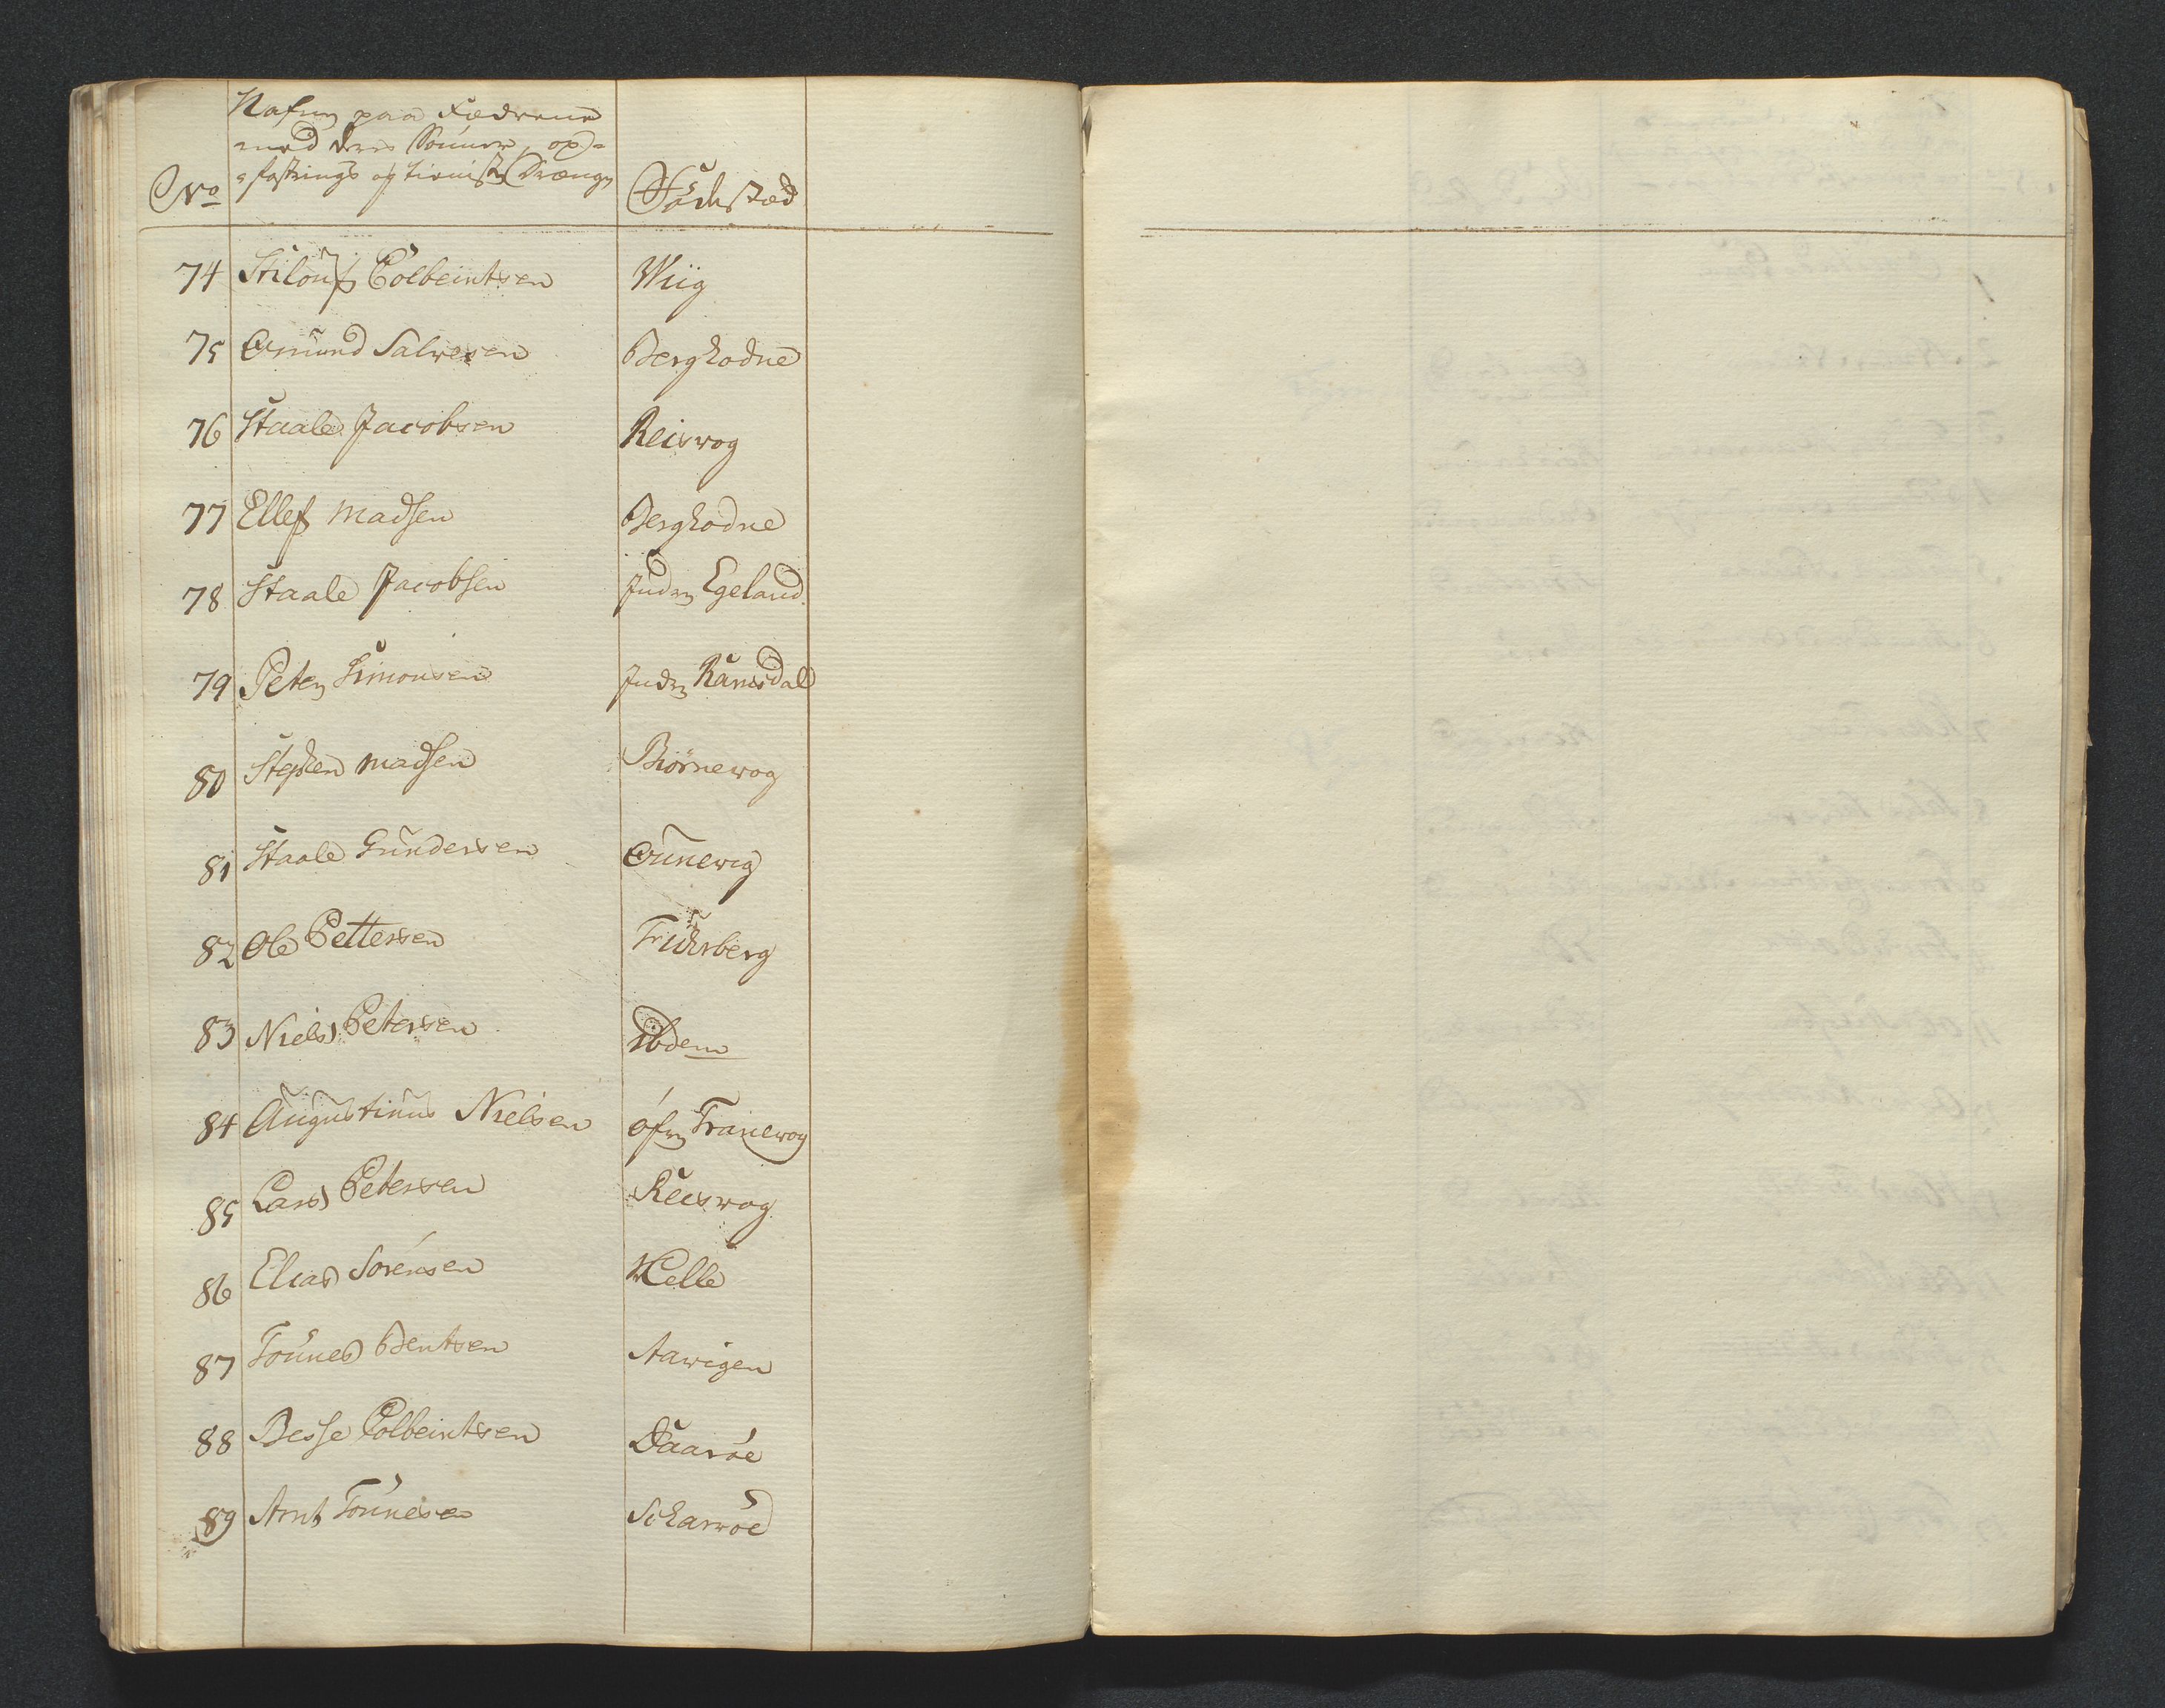 Nafen paa Fædrene
med deres Sönner, op=
=fostrings og tieniste Drænge
No
Födested
74 Colbeintsen Wiig
75 Omund Salvesen Berghodne
76 Staale Jacobsen Reisvog
77 Ellef Madsen Berghodne
78 Staale Jacobsen Inden Egeland
79 Peter Simonsen Inden Ramsdal
80 Stephen Madsen Biörnevog
81 Staale Gundersen Ounevig
82 Ole Pettersen Fridrsberg
83 Niels Petersen Ibdem
84 Augustinus Nielsen öfen Tranevog
85 Lars Petersen Reisvog
86 Elias Sörensen Helle
87 Tönnes Bentsen Aavigen
88 Besse Colbeintsen Daaröe
89 Arnt Tönnesen Scharvöe